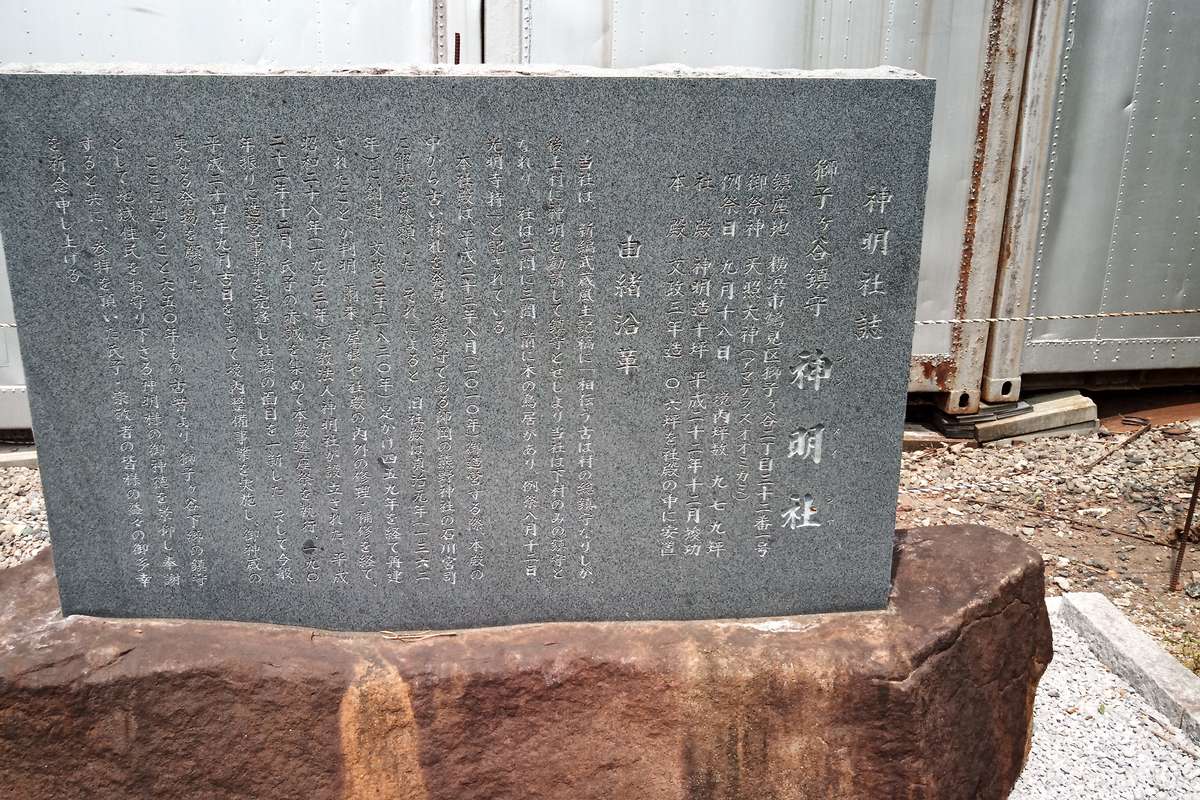 神明社誌
獅子ヶ谷鎮守 神明社
鎮座地 横浜市鶴見区獅子ヶ谷二丁目三十二番一号
御祭神 天照大神(アマテラスオオミカミ)
例祭日 九月十八日 境内坪数 九七九坪
社殿 神明造十坪 平成二十二年十二月竣功
本殿 文政三年造 〇六坪を社殿の中に安置
由緒沿革
当社は「新編武蔵風土記稿に「相伝う古は村の総鎮守なりしか
後上村に神明を勧請して鎮守とせしより当社は下村のみの鎮守と
なれり 社は二間に三間、前に木の鳥居があり 例祭八月十三日
光明寺持」と記されている
本社殿は 平成二十二年八月(二〇一〇年)御造営する際 本殿の
中から古い棟札を発見 総鎮守である師岡の熊野神社の石川宮司
に解読を依頼した それによると 旧社殿は貞治元年(一三六二
年)に創建 文政三年(一八二〇年)とかけ四五九年を経て再建
されたことが判明 爾来 屋根や社殿の内外の修理 補修を経て、
昭和二十八年(一九五三年)宗教法人神明社が設立された 平成
二十二年十二月 氏子の赤誠を集めて本殿遷座祭を執行 一九〇
年振りに造営事業を完遂し社殿の面目を一新した そして今般
平成二十四年九月吉日をもって境内整備事業を実施し 御神威の
更なる発揚を願った
ここに遡ること六五〇年もの古昔より 獅子ヶ谷下郷の鎮守
として地域住民をお守り下さる神明様の御神徳を景仰し奉謝
すると共に 参拝を頂いた氏子・崇敬者の皆様の益々の御多幸
を祈念申し上げる